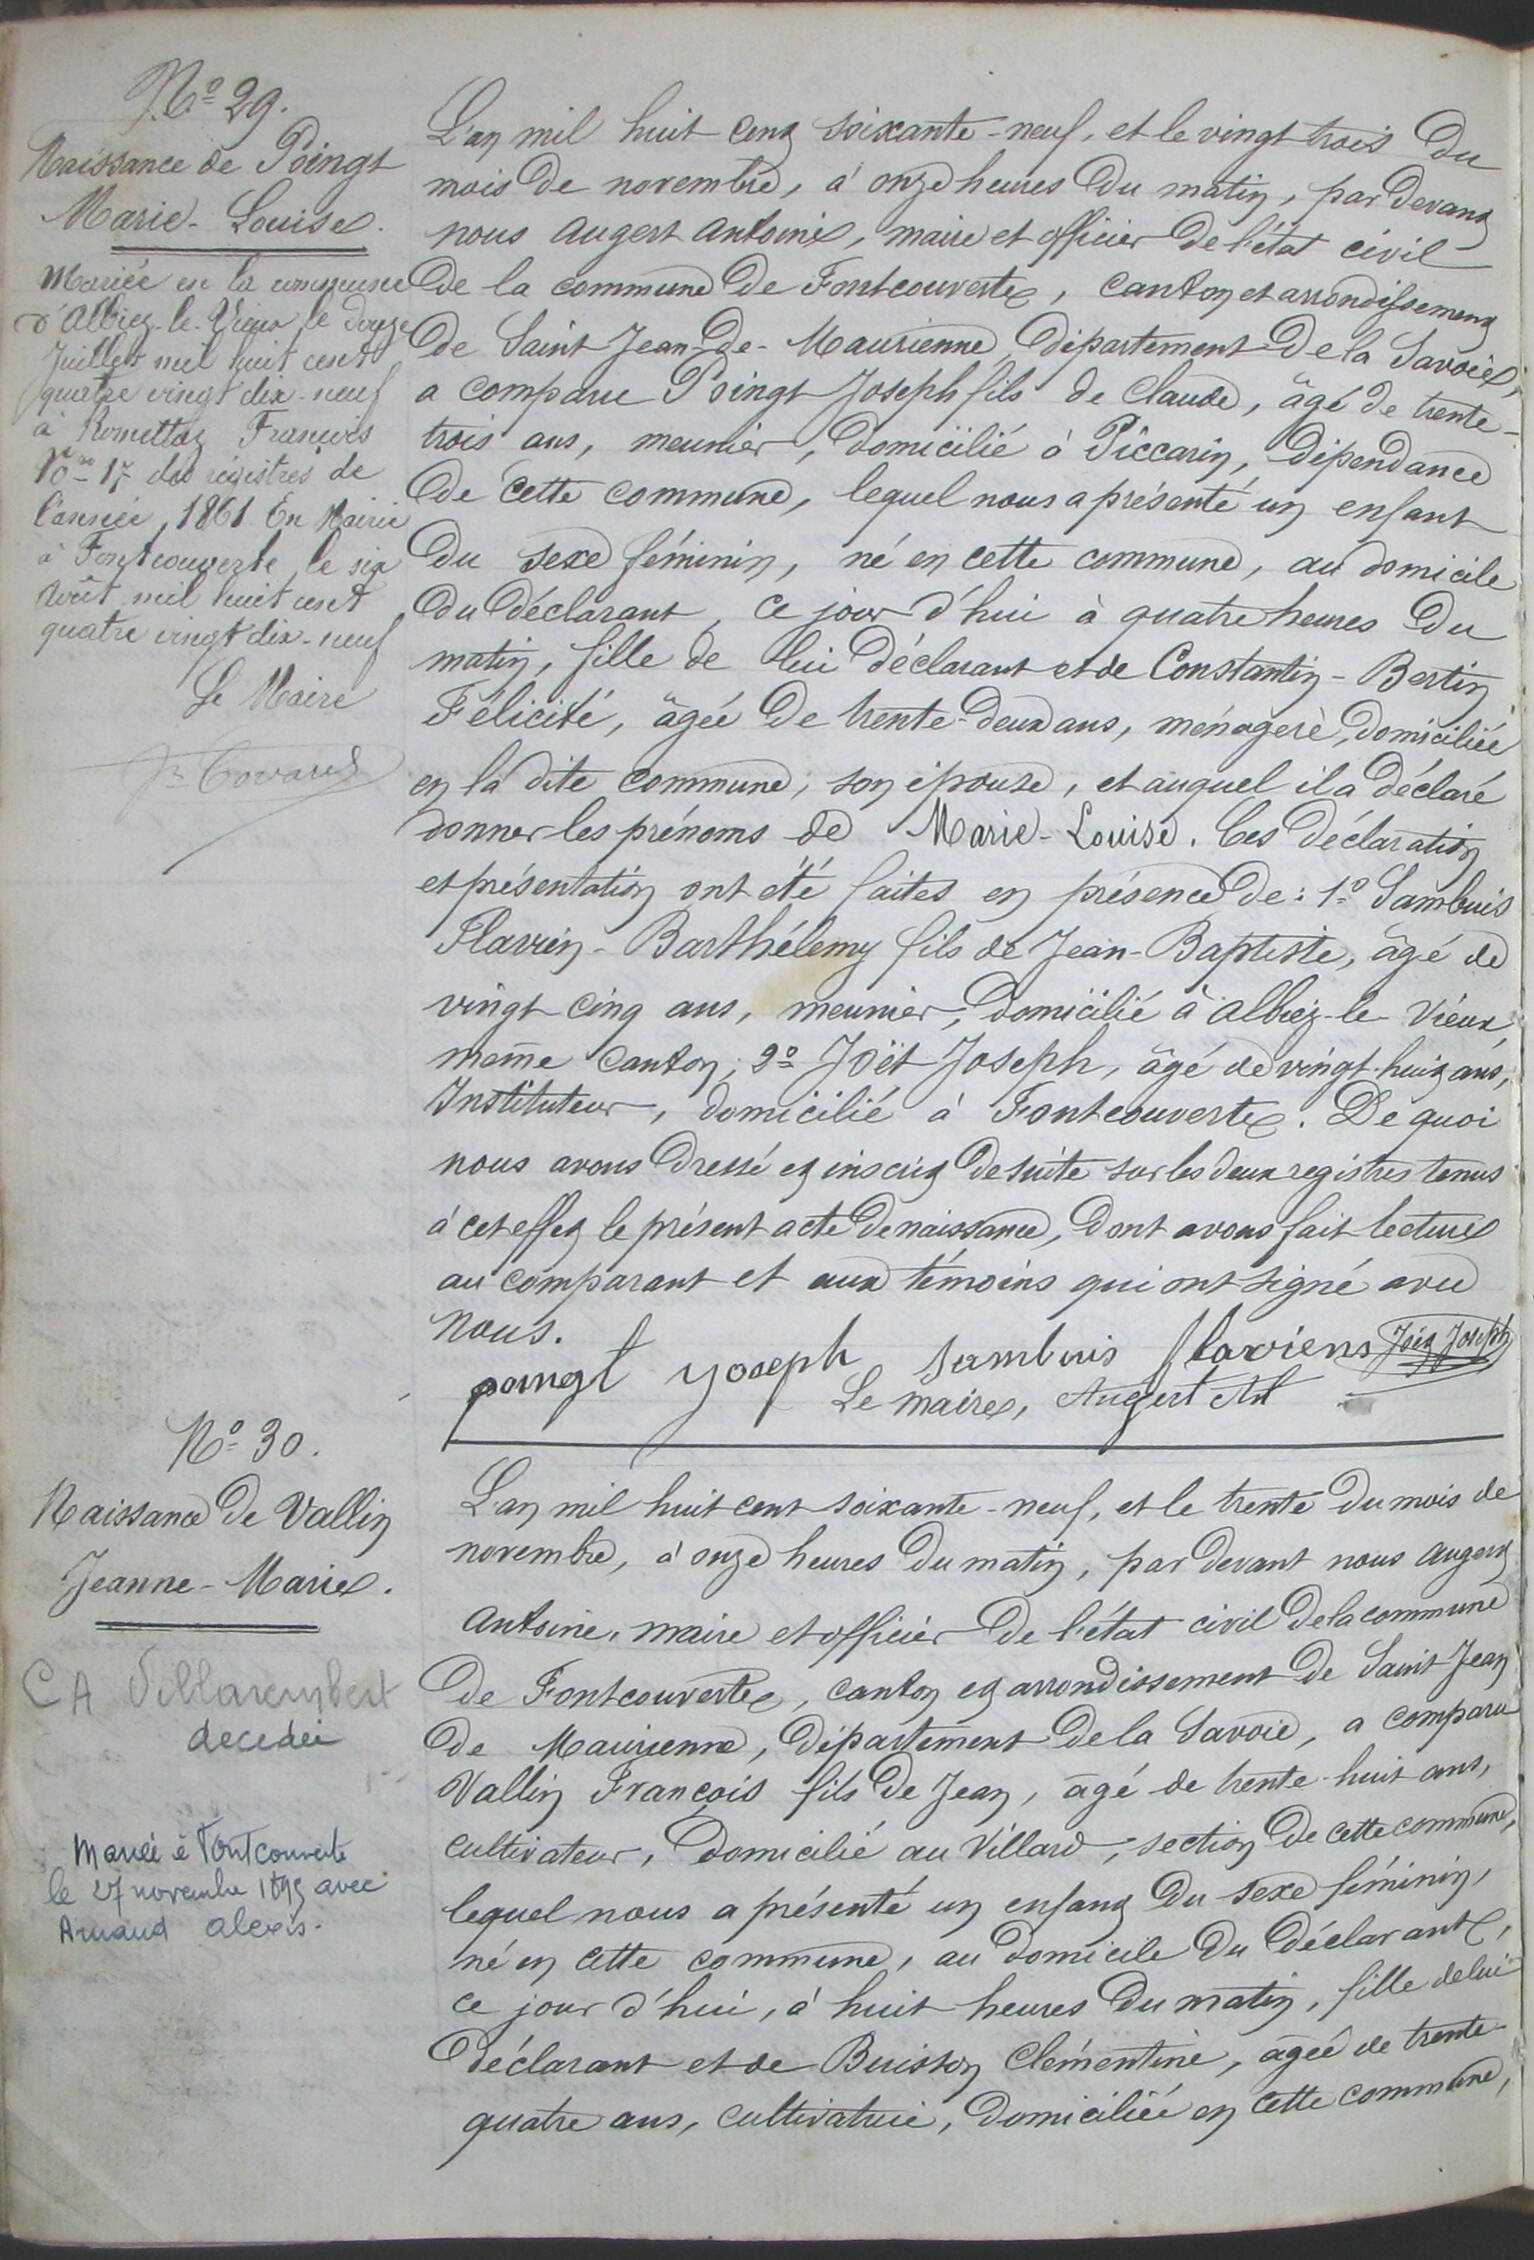 N° 29.
Naissance de Poingt
Marie-Louise.
Mariée en la commune
d'Albiez-le-Vieux le douze
Juillet mil huit cent
quatre vingt dix-neuf
à Romettaz François
No 17 des régistres de
l'année, 1861. En Mairie
à Fontcouverte, le six
Août mil huit cent
quatre vingt dix-neuf
Le Maire
L'an mil huit cent soixante-neuf, et le vingt trois du
mois de novembre, à onze heures du matin, par devant
nous Augert Antoine, maire et officier de l'état civil
de la commune de Fontcouverte, canton et arrondissement
de Saint Jean-de-Maurienne, département de la Savoie,
a comparu Poingt Joseph fils de Claude, âgé de trente-
trois ans, meunier, domicilié à Piccarin, dépendance
de cette commune, lequel nous a présenté un enfant
du sexe féminin, né en cette commune, au domicile
du déclarant, ce jour d'hui à quatre heures du
matin, fille de lui déclarant et de Constantin-Bertin
Félicité, âgée de trente-deux ans, ménagère, domiciliée
en la dite commune, son épouse, et auquel il a déclaré
donner les prénoms de Marie-Louise. Ces déclaration
et présentation ont été faites en présence de: 1° Sambuis
Flavien-Barthélemy fils de Jean-Baptiste, âgé de
vingt cinq ans, meunier, domicilié à Albiez-le-Vieux,
même canton; 2° Joët Joseph, âgé de vingt-huit ans,
Instituteur, domicilié à Fontcouverte. De quoi
nous avons dressé et inscrit de suite sur les deux registres tenus
à cet effet le présent acte de naissance, dont avons fait lecture
au comparant et aux témoins qui ont signé avec
nous.
poingt yoseph sambuis flaviens Joët Joseph
Le maire, Augert Ant
N° 30.
Naissance de Vallin
Jeanne-Marie.
CA Villarembert
decedée
Mariée à Fontcouverte
le 27 novembre 1895 avec
Arnaud Alexis.
L'an mil huit cent soixante-neuf, et le trente du mois de
novembre, à onze heures du matin, par devant nous Augert
Antoine, maire et officier de l'état civil de la commune
de Fontcouverte, canton et arrondissement de Saint Jean
de Maurienne, département de la Savoie, a comparu
Vallin François fils de Jean, âgé de trente-huit ans,
cultivateur, domicilié au Villard, section de cette commune,
lequel nous a présenté un enfant du sexe féminin,
né en cette commune, au domicile du déclarant,
ce jour d'hui, à huit heures du matin, fille de lui
déclarant et de Buisson Clémentine, âgée de trente
quatre ans, cultivatrice, domiciliée en cette commune,